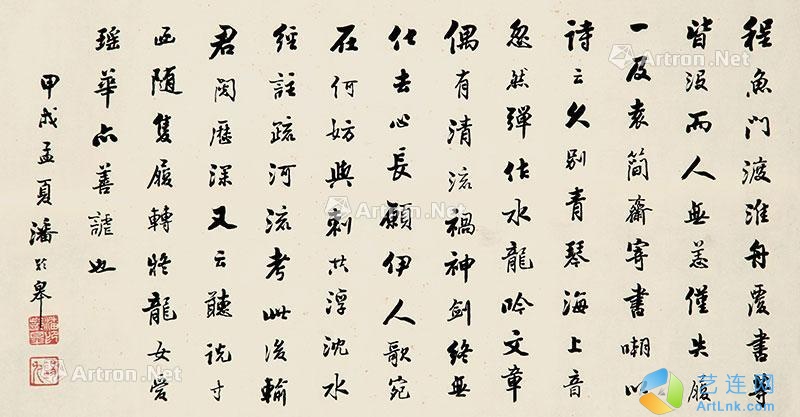 程魚門渡淮舟覆書尊
皆沒而人無恙僅失履
一及袁簡齋寄書嘲以
詩云久別青琴海上音
忽然彈作水龍吟文章
偶有清流禍神劍終無
化去心長願伊人歌宛
在何妨與刺共浮沈水
經註疏河流考此後輸
君閱歷深又云聽說寸
函隨隻履轉將龍女愛
瑤華亦善謔也
甲戌孟夏潘齡皋
Artron.Net
Artron.Net
Artron.Net
Artron.Net
Artron.Net
Artron.Net
艺连网
ArtLnk.com